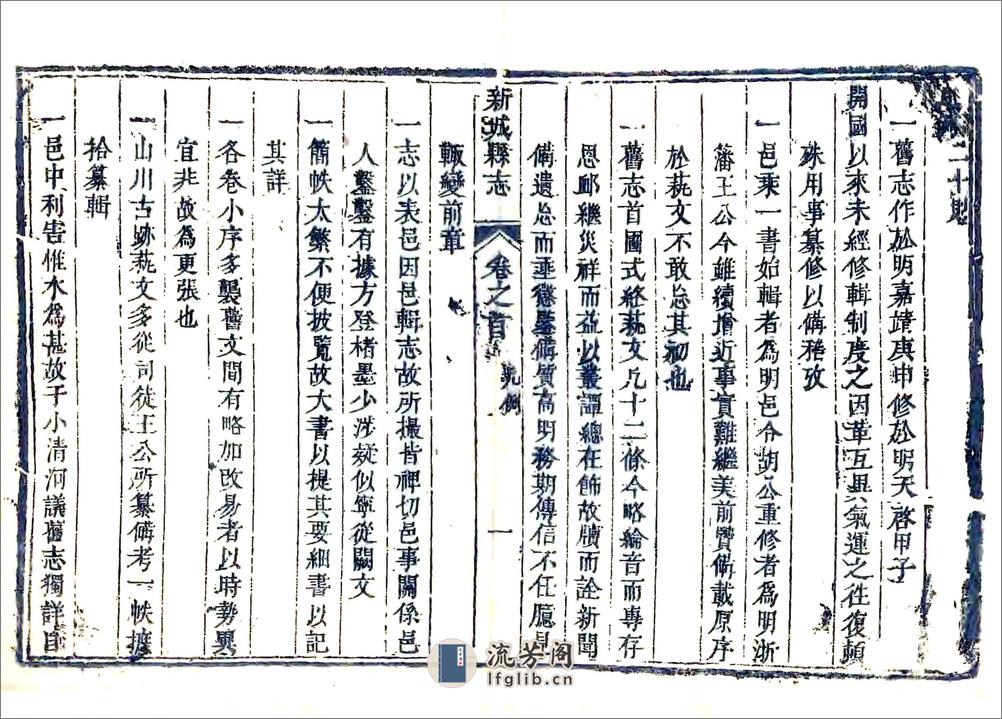 二十則
一舊志作於明嘉靖庚申修於明天啓甲子
開國以來未經修輯制度之因革互異氣運之往復頼
殊用事纂修以備稽攷
一邑乘一書始輯者為明邑令胡公重修者為明浙
藩王公今雖續增近事實難繼美前賢備載原序
於藝文不敢忘其初也
一舊志首國式終藝文凡十二條今略綸音而專存
恩邮繼災祥而益以叢譚總在飾故牘而詮新聞
備遺忘而垂懲鑒備質高明務期傳信不任臆見
輙變前章
新城縣志
卷之首
凡例
一
一志以表邑因邑輯志故所撮皆裡切邑事關係邑
人鑿鑿有據方登楮墨少涉疑似寧從闕文
一簡帙太繁不便披覧故大書以提其要細書以記
其詳
一各卷小序多襲舊文間有略加改易者以時勢異
宜非故為更張也
一山川古跡藝文多從司徒王公所纂備考一帙攄
拾纂輯
一邑中利害惟水為甚故于小清河議舊志獨詳自
流芳阁
lfglib.cn